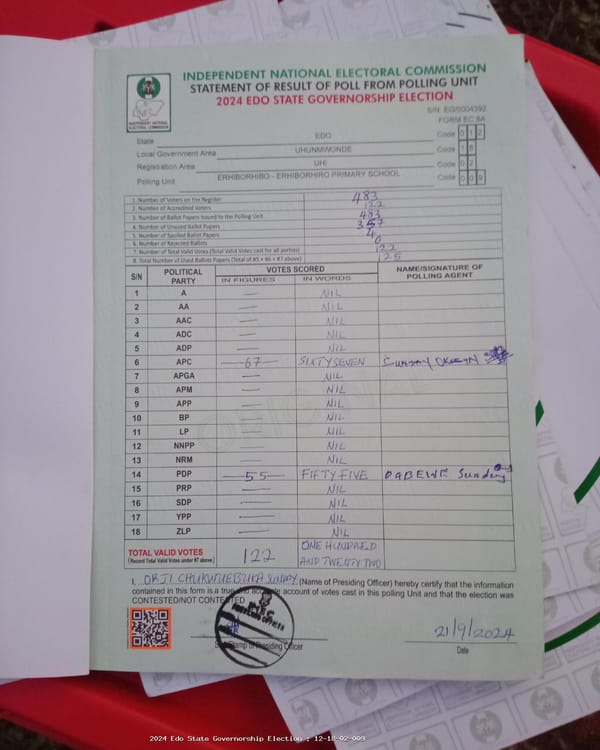 INDEPENDENT NATIONAL ELECTORAL COMMISSION
STATEMENT OF RESULT OF POLL FROM POLLING UNIT
2024 EDO STATE GOVERNORSHIP ELECTION
INDEPENDENT NATIONAL ELECTORAL COMMISSION
S/N: EG/0004392
FORM EC 8A
State EDO Code 0 1 2
Local Government Area UHUNMWONDE Code 1 8
Registration Area UHI Code 0 2
Polling Unit ERHIBORHIBO - ERHIBORHIRO PRIMARY SCHOOL Code 0 0 9
1. Number of Voters on the Register 483
2. Number of Accredited Voters 122
3. Number of Ballot Papers Issued to the Polling Unit 483
4. Number of Unused Ballot Papers
5. Number of Spoiled Ballot Papers
6. Number of Rejected Ballots 0
7. Number of Total Valid Votes (Total Valid Votes cast for all parties) 122
8. Total Number of Used Ballots Papers (Total of #5 + #6 + #7 above) 125
S/N POLITICAL PARTY VOTES SCORED NAME/SIGNATURE OF POLLING AGENT
IN FIGURES IN WORDS
1 A — NIL
2 AA — NIL
3 AAC — NIL
4 ADC — NIL
5 ADP — NIL
6 APC —67— SIXTY SEVEN
7 APGA — NIL
8 APM — NIL
9 APP — NIL
10 BP — NIL
11 LP — NIL
12 NNPP — NIL
13 NRM — NIL
14 PDP —55— FIFTY FIVE Sunday
15 PRP — NIL
16 SDP — NIL
17 YPP — NIL
18 ZLP — NIL
TOTAL VALID VOTES 122 ONE HUNDRED AND TWENTY TWO
(Record Total Valid Votes under #7 above)
I, ORJI CHUKWUEBUKA SUNDAY (Name of Presiding Officer) hereby certify that the information
contained in this form is a true and accurate account of votes cast in this polling Unit and that the election was
CONTESTED/NOT CONTESTED
INEC
PRESIDING OFFICER
Stamp of Presiding Officer
21/9/2024
Date
2024 Edo State Governorship Election : 12-18-02-009